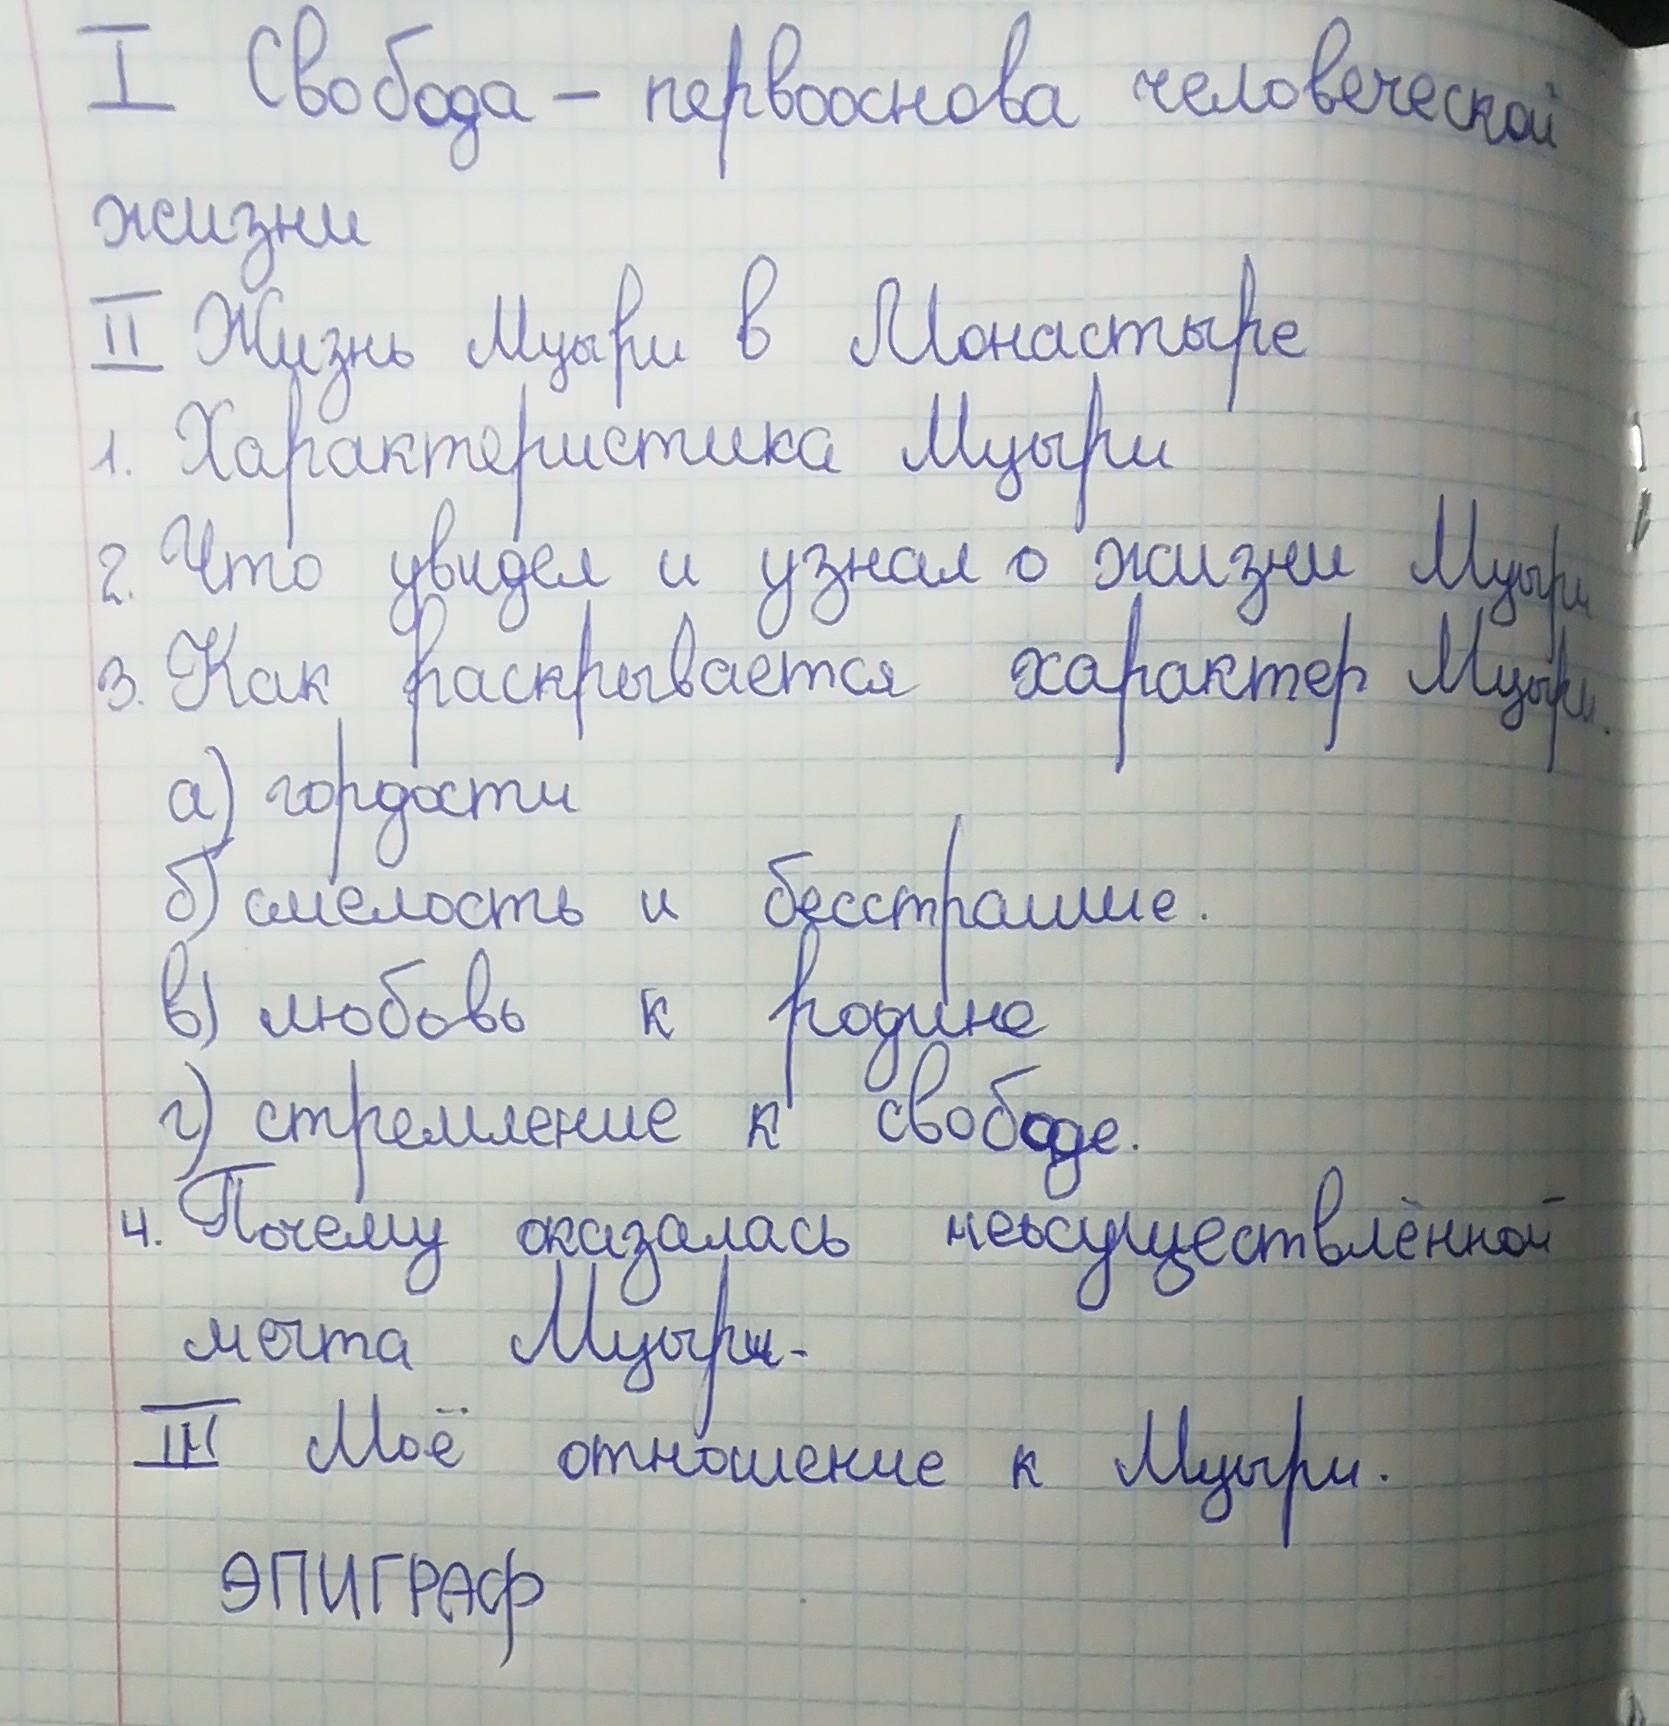 I Свобода – первооснова человеческой
жизни
II Жизнь Мцыри в Монастыре
1. Характеристика Мцыри
2. Что увидел и узнал о жизни Мцыри
3. Как раскрывается характер Мцыри.
а) гордости
б) смелость и бесстрашие.
в) любовь к родине
г) стремление к свободе.
4. Почему оказалась неосуществлённой
мечта Мцыри.
III Моё отношение к Мцыри.
ЭПИГРАФ